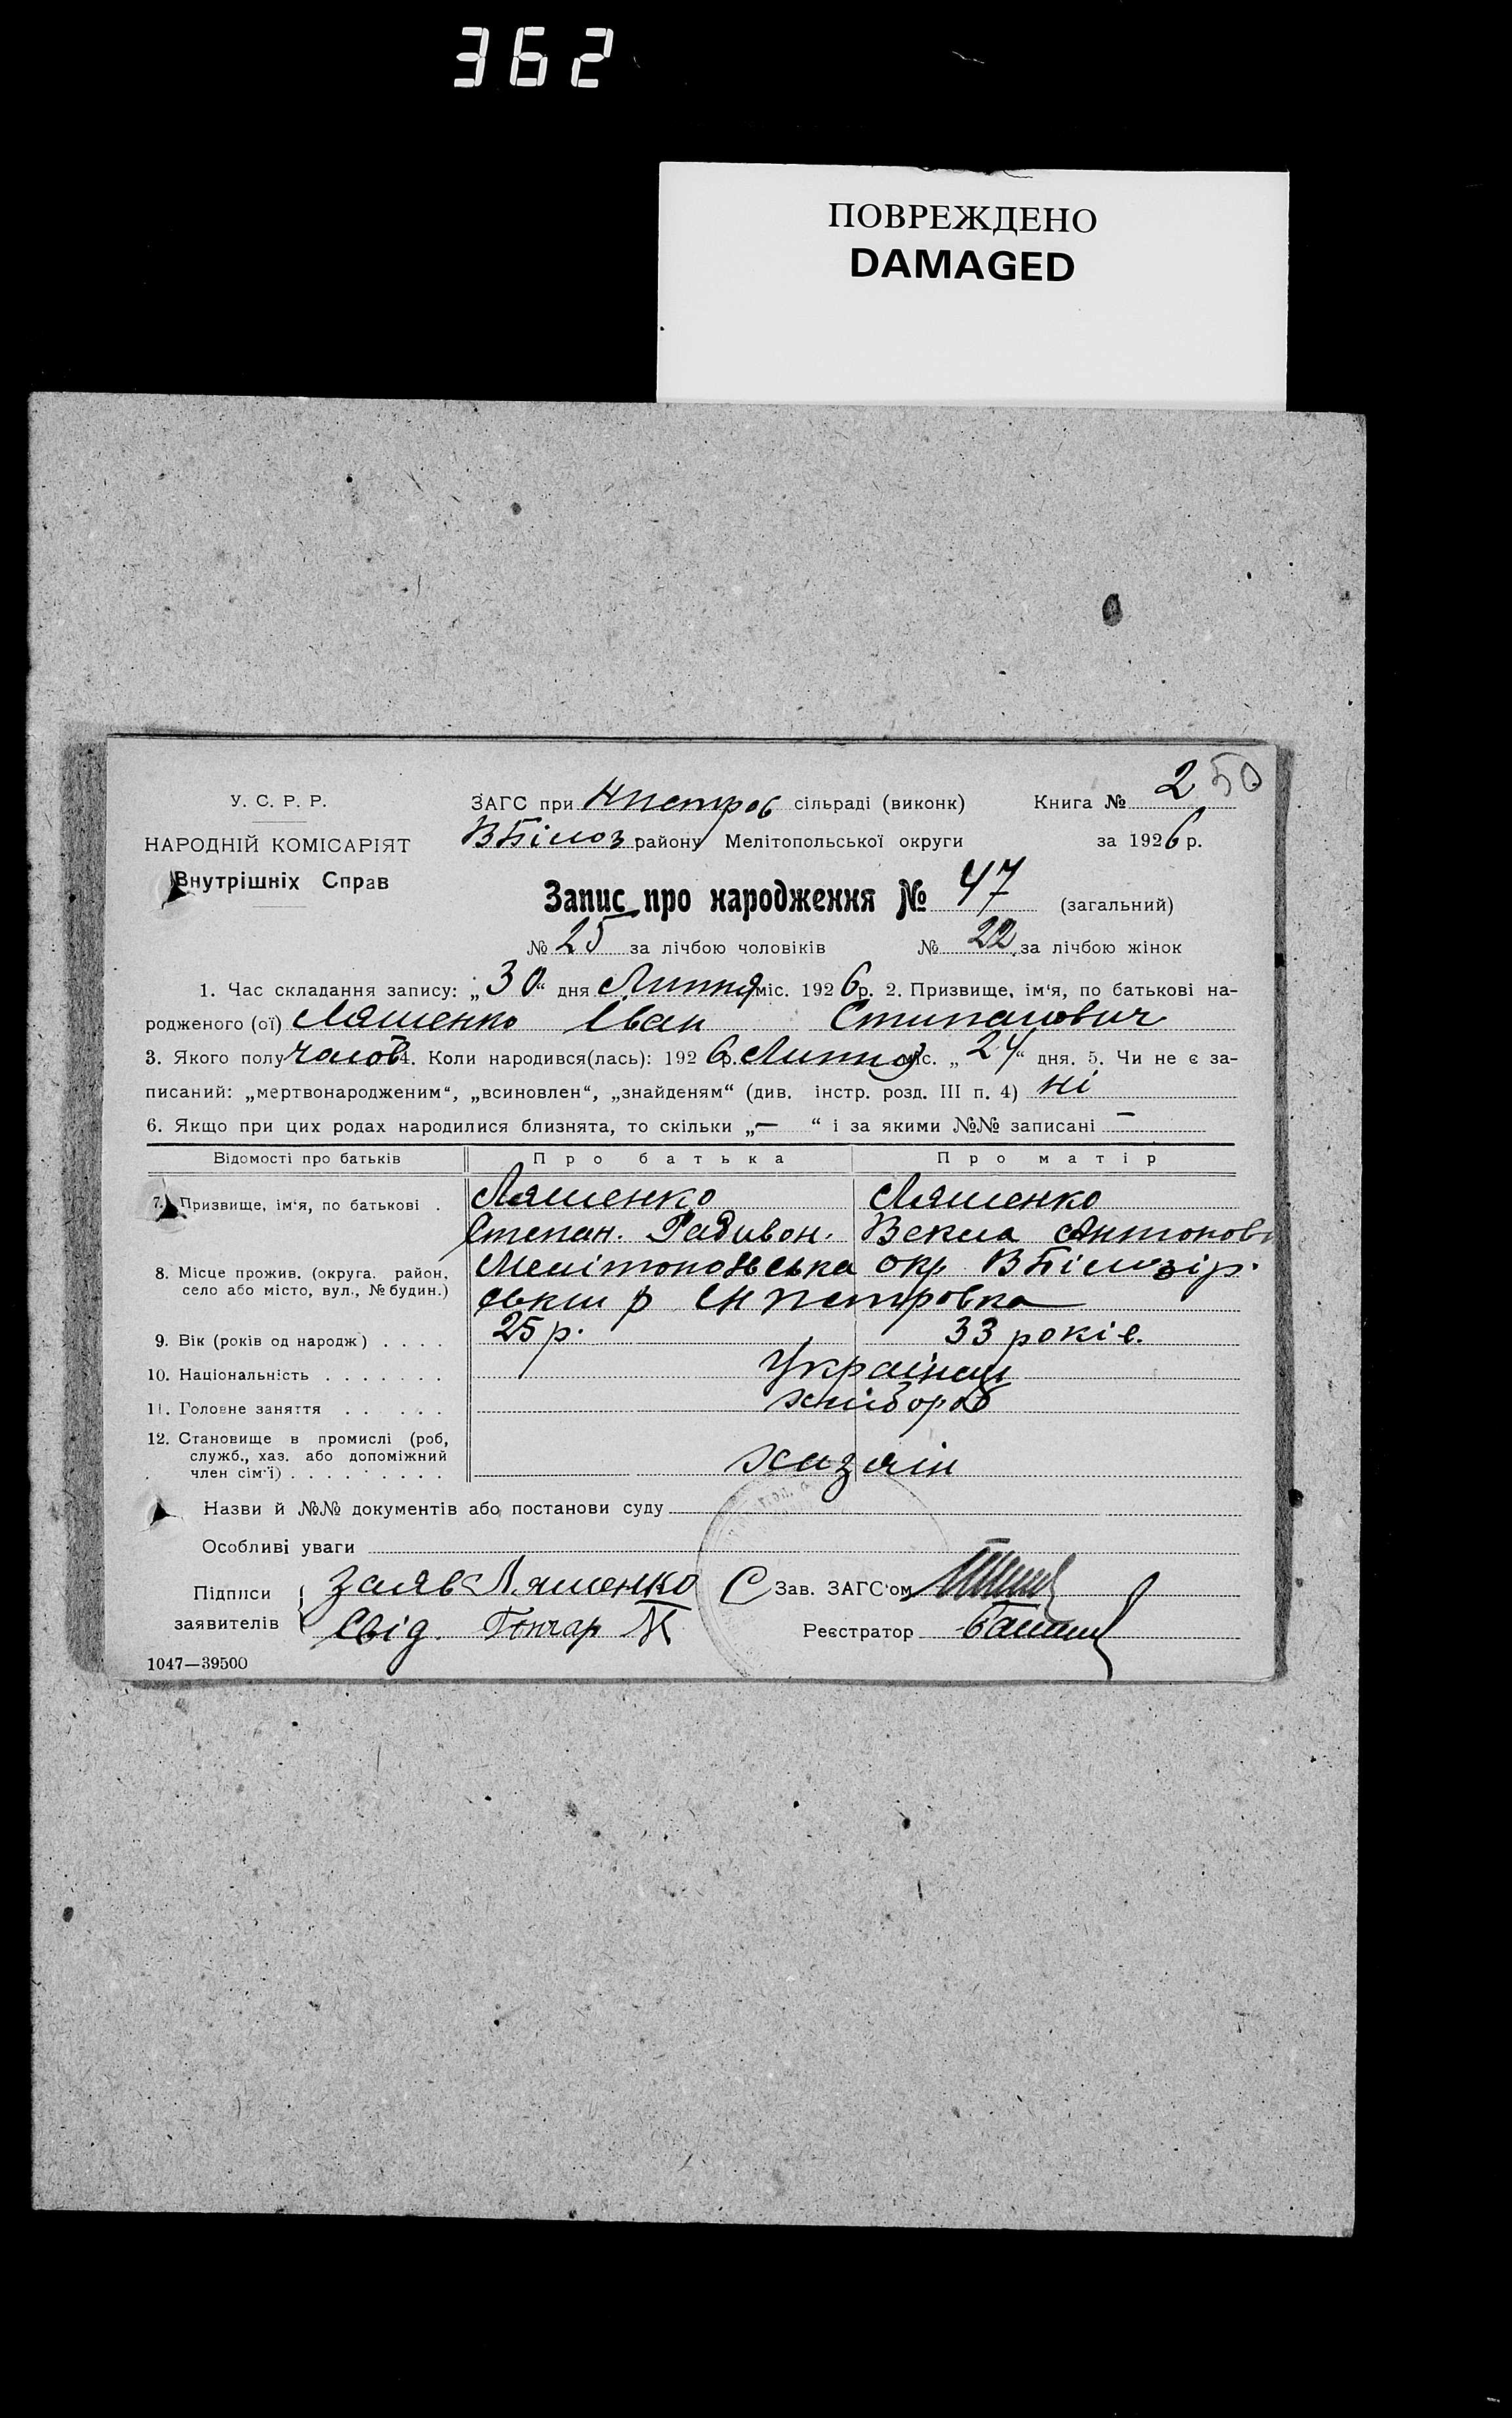 362
ПОВРЕЖДЕНО
DAMAGED
250
У. С. Р. Р.
ЗАГС при Нпетров сільраді (виконк)
Книга №
НАРОДНІЙ КОМІСАРІЯТ
ВБілоз району Мелітопольської округи
за 1926 р.
Внутрішніх Справ
Запис про народження № 47 (загальний)
№ 25 за лічбою чоловіків № 22 за лічбою жінок
1. Час складання запису: „30“ дня Липня міс. 1926 р. 2. Призвище, ім‘я, по батькові на-
родженого (ої) Ляшенко Іван Стипанович
3. Якого полу чолов 4. Коли народився(лась): 1926 р. Липня міс. „24“ дня. 5. Чи не є за-
писаний: „мертвонародженим“, „всиновлен“, „знайденям“ (див. інстр. розд. III п. 4) ні
6. Якщо при цих родах народилися близнята, то скільки „—“ і за якими №№ записані —
Відомості про батьків Про батька Про матір
7. Призвище, ім‘я, по батькові . Ляшенко Ляшенко
Степан. Радивон. Векла Антонов
8. Місце прожив. (округа. район, село або місто, вул., № будин.) Мелітопольська окр ВБілозір.
ськ р СНпетровка
9. Вік (років од народж) . . . . 25 р. 33 років.
10. Національність . . . . . . . Українці
11. Головне заняття . . . . . . хлібороб
12. Становище в промислі (роб,
служб., хаз. або допоміжний
член сім‘ї) . . . . . . . . . хазяїн
Назви й №№ документів або постанови суду
Особливі уваги
Підписи заяв Ляшенко С Зав. ЗАГС‘ом
заявителів Свід. Гончар Реєстратор
1047—39500